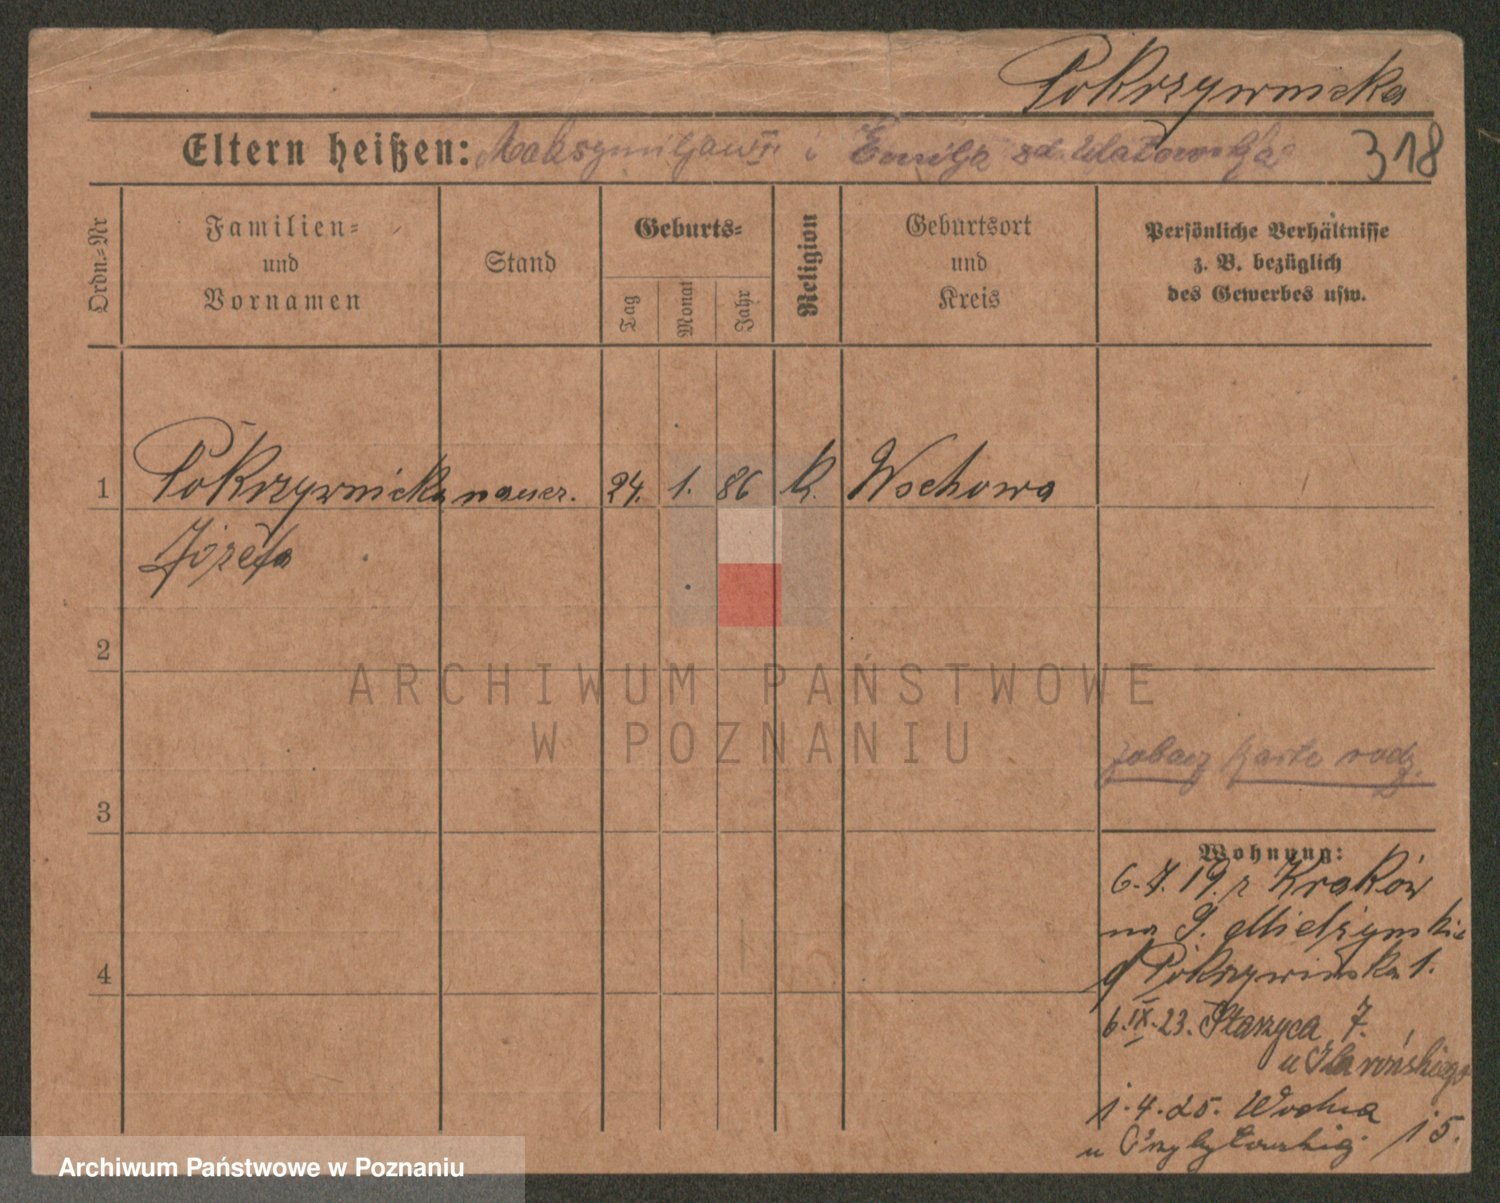 Pokrzywnicka
Eltern heißen: Maksymiljan i Emilja zd.
318
Ordn.-Nr
Familien-
und
Vornamen
Stand
Geburts-
Tag
Monat
Jahr
Religion
Geburtsort
und
Kreis
Persönliche Verhältnisse
z. B. bezüglich
des Gewerbes usw.
1 Pokrzywnicka naucz. 24. 1. 86 k. Wschowa
Józefa
2
ARCHIWUM PAŃSTWOWE
W POZNANIU
zobacz kartę rodz.
3
Wohnung:
6.7.19. z Kraków
na
Pokrzywnicka 1.
4
6.IX.23. 7.
u
1.4.25. Wodna 15.
u
Archiwum Państwowe w Poznaniu